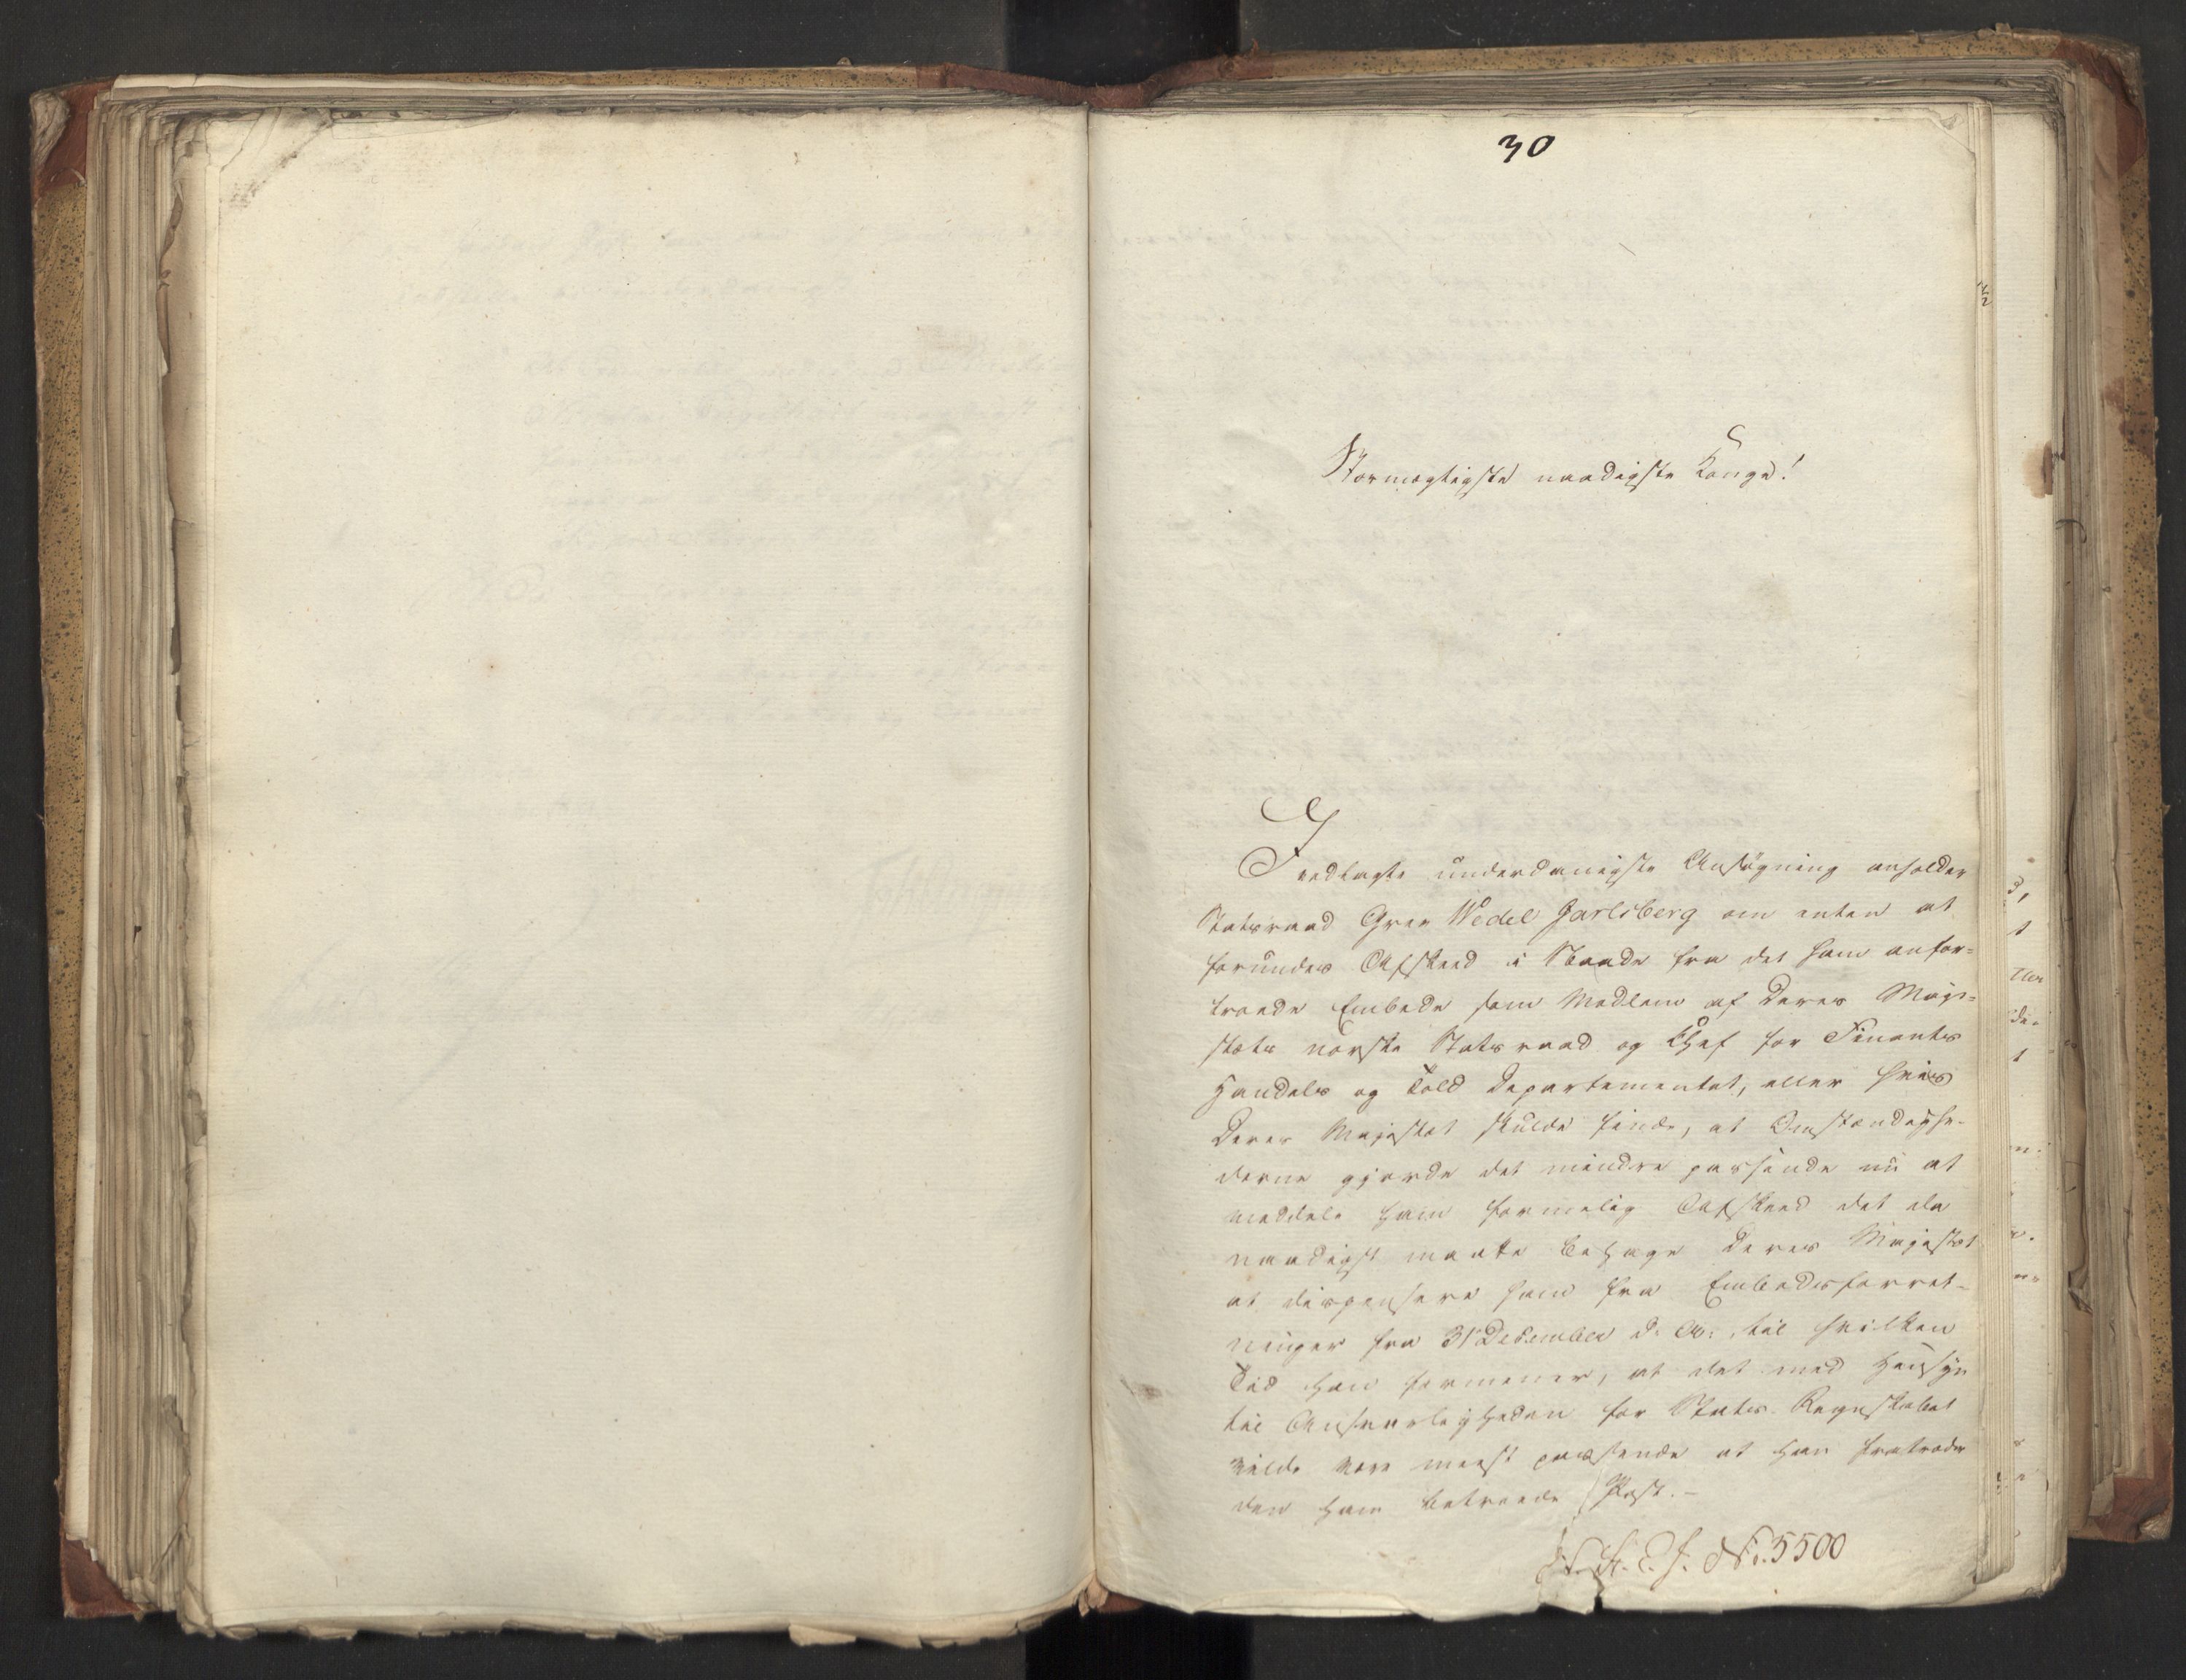 30
Stormægtigste naadigste Konge!
I vedlagte underdanigste Ansøgning anholder
Statsraad Grev Wedel Jarlsberg om enten at
forundes Afskeed i Naade fra det ham anfor-
troede Embede som Medlem af Deres Maje-
stæts norske Statsraad og Chef for Finants
Handels og Told Departementet, eller hvis
Deres Majestæt skulde finde, at Omstændighe-
derne gjorde det mindre passende nu at
meddele ham formelig Afskeed det da
naadigst maatte behage Deres Majestæt
at dispensere ham fra Embedsforret-
ninger fra 31 December d. A., til hvilken
Tid han formener, at det med Hensyn
til Ansvarligheden for Stats-Regnskabet
vilde være meest passende at han fratræder
den ham betroede Post.-
No. 5500